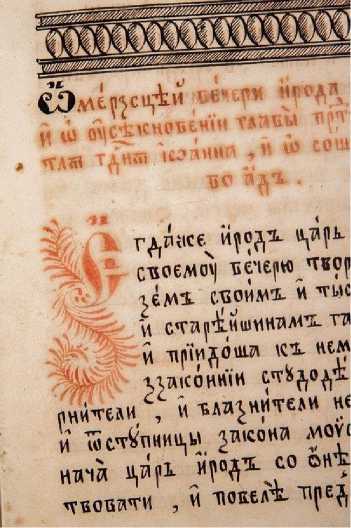 Ѽ мéрзсцѣй вéчери и҆́рода
и҆ ѡ҆ оу҆сѣкновéнїи главы̀ прⷣт
и҆ѡ́анна , и҆ ѡ҆ сош
во а҆́дъ .
Е҆гдáже и҆́родъ цáрь
своемоу̀ вéчерю твор
зéмъ свои́мъ и҆ тыс
и҆ старѣ́йшинамъ га
и҆ прїидóша къ нем
ззакóннїи студодѣ́
рнители , и҆ блазни́тели не
и҆ ѿстꙋ́пницы закóна моѵс
начà цáрь и҆́родъ со
твовати , и҆ повелѣ̀ пред